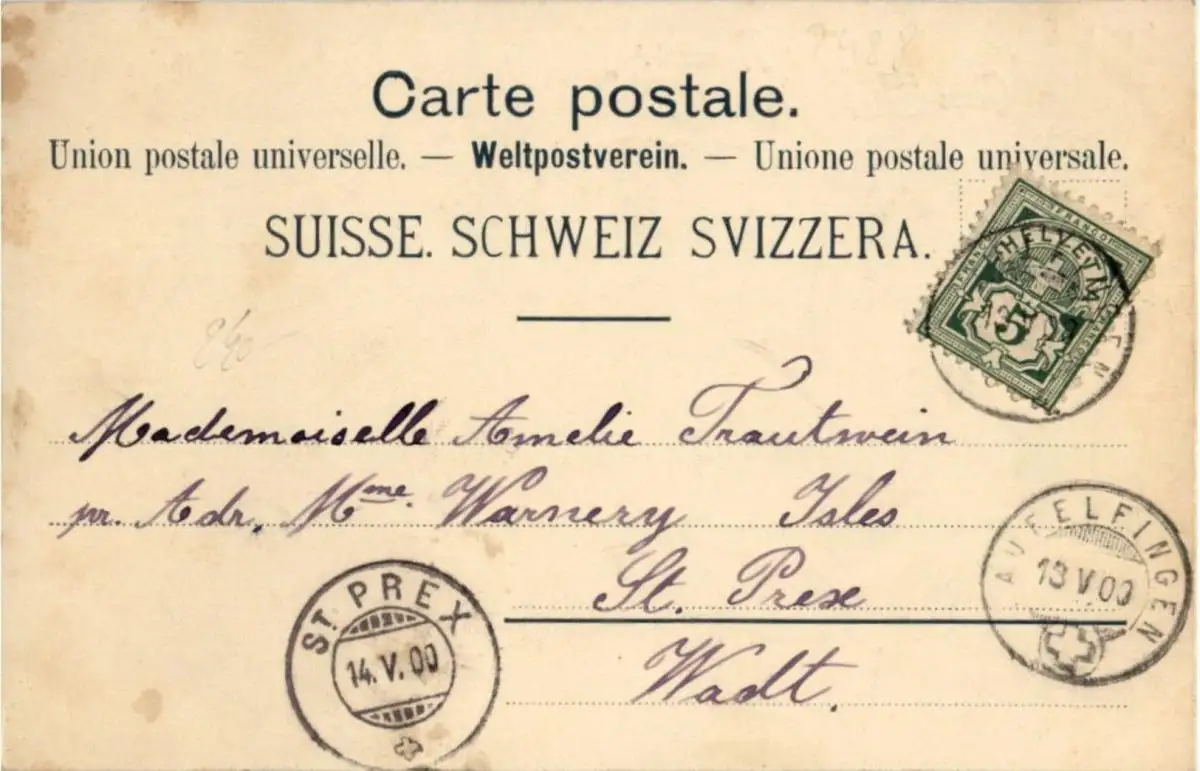 Carte postale.
Union postale universelle. — Weltpostverein. — Unione postale universale.
SUISSE. SCHWEIZ SVIZZERA.
FRANCO
HELVETIA
5
Mademoiselle Amelie Trautwein
pr. Adr. Mme. Warnery Isles
St. Prex
Wadt.
AUFELFINGEN
13 V 00
ST. PREX
14. V. 00